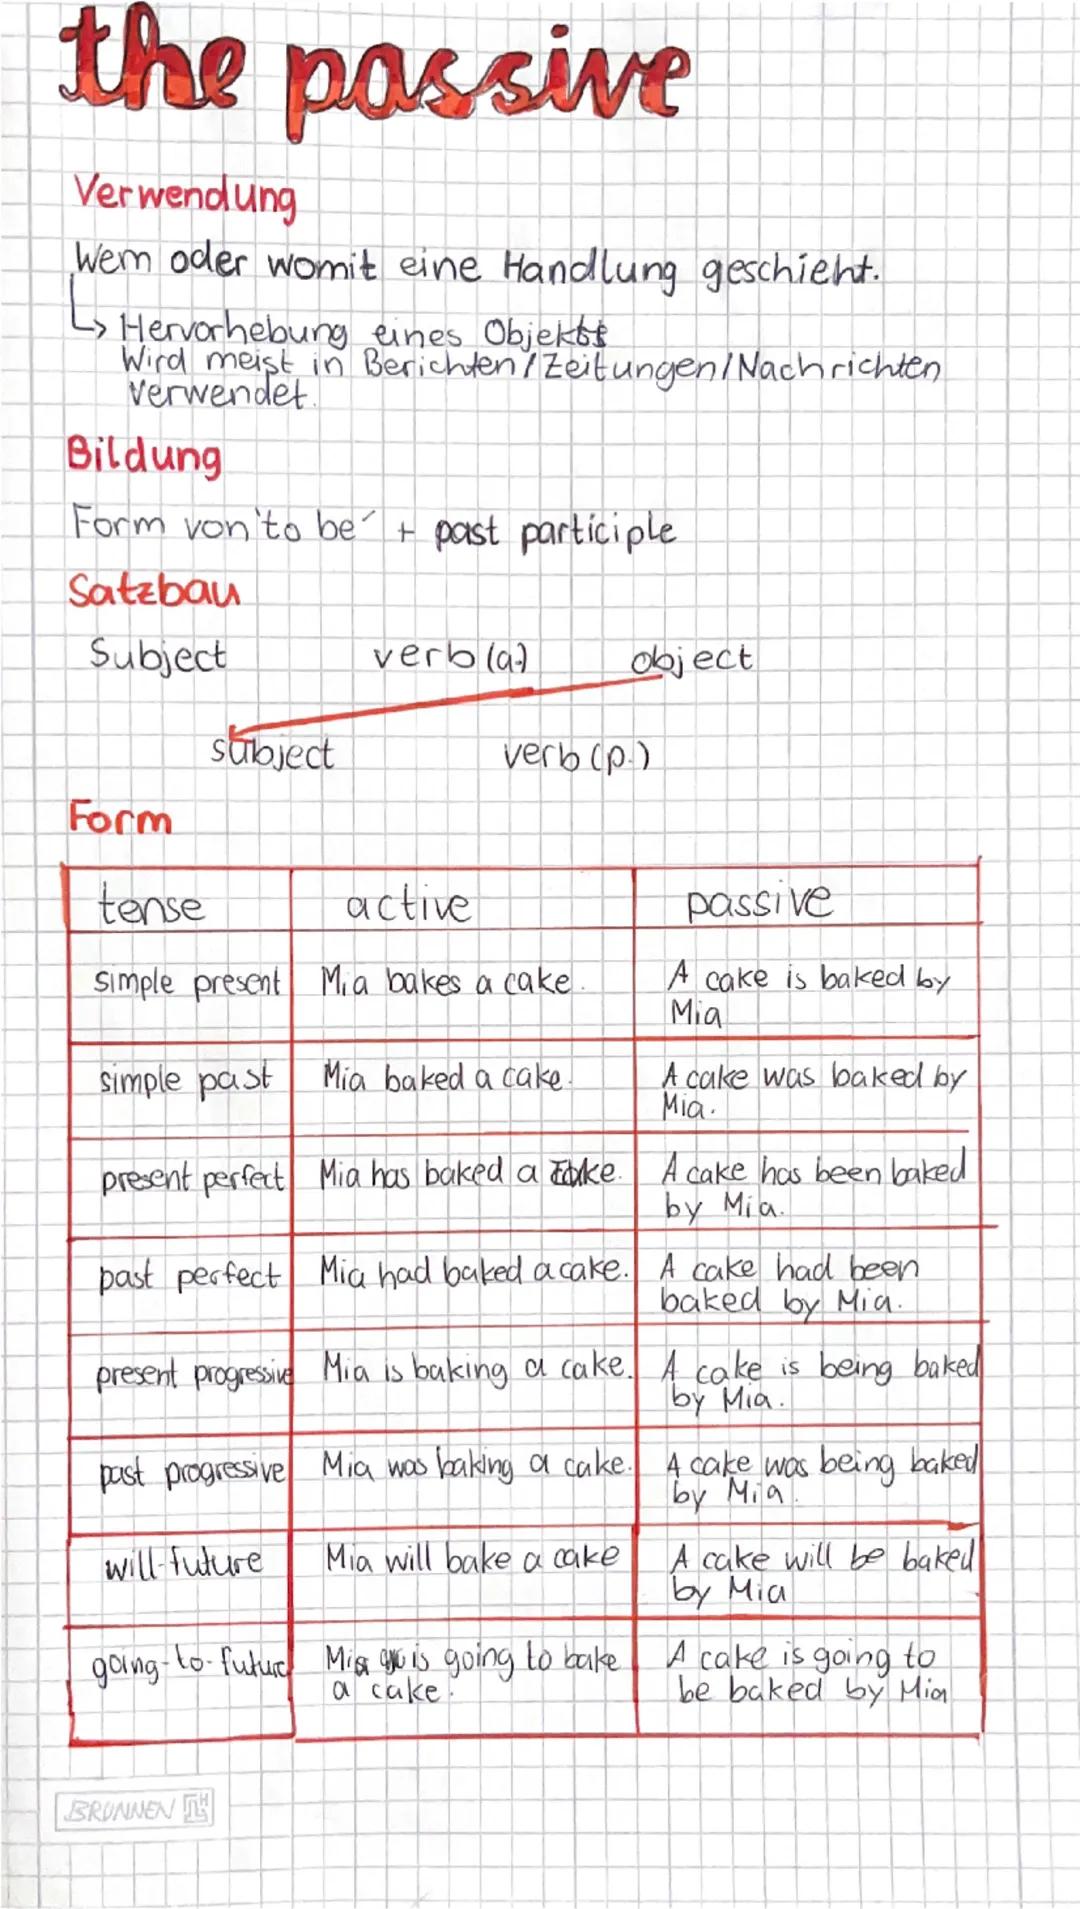 the passive
Verwendung
Wem oder womit eine Handlung geschieht.
↳ Hervorhebung eines Objekts
Wird meist in Berichten/Zeitungen/Nachrichten
verwendet.
Bildung
Form von 'to be' + past participle
Satzbau
Subject verb (a.) object
subject verb (p.)
Form
tense active passive
simple present Mia bakes a cake. A cake is baked by
Mia
simple past Mia baked a cake. A cake was baked by
Mia.
present perfect Mia has baked a cake. A cake has been baked
by Mia.
past perfect Mia had baked a cake. A cake had been
baked by Mia.
present progressive Mia is baking a cake. A cake is being baked
by Mia.
past progressive Mia was baking a cake. A cake was being baked
by Mia.
will-future Mia will bake a cake A cake will be baked
by Mia
going-to-future Mia is going to bake A cake is going to
a cake. be baked by Mia
BRUNNEN